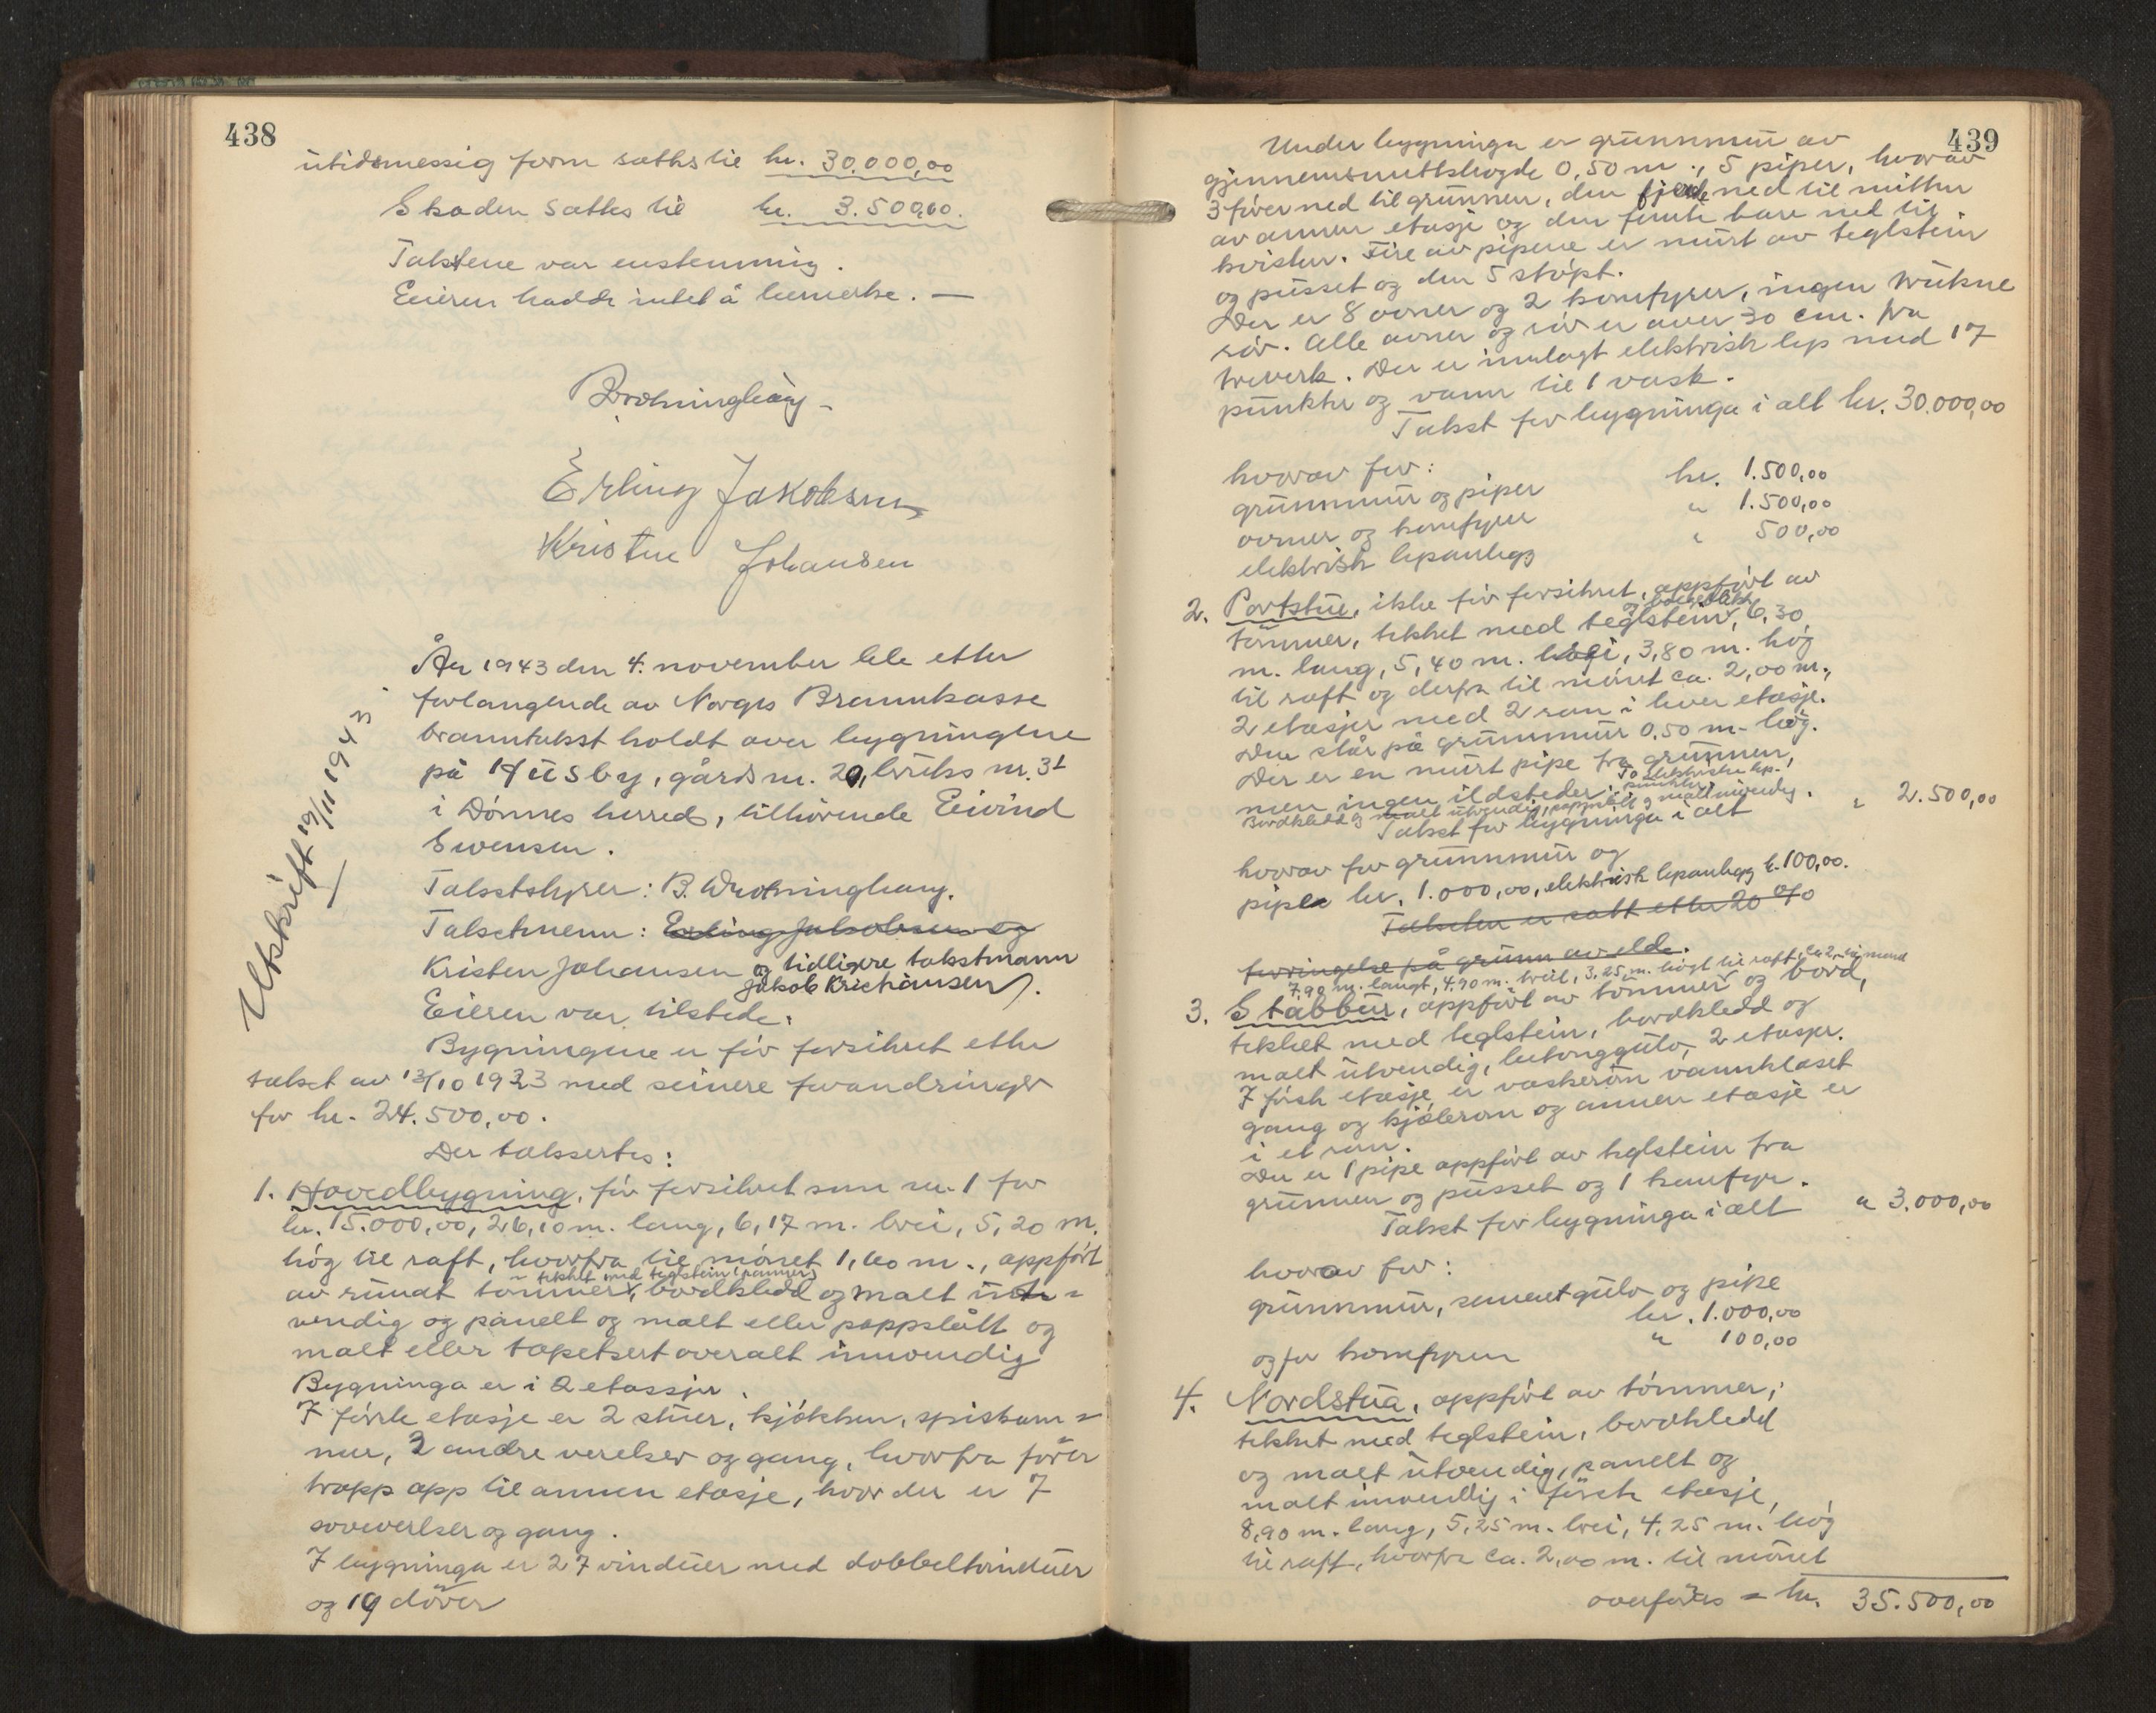 438
utidsmessig form sættes til kr. 30.000,00
Skaden sættes til kr. 3.500,00.
Takstene var enstemmig.
Eieren hadde intet å bemerke. —
Erling Jakobsen
Kristen Johansen
Utskrift 19/11 1943
År 1943 den 4. november ble etter
forlangende av Norges Brannkasse
branntakst holdt over bygningene
på Husby, gårdsnr. 20, bruks nr. 31
i Dønnes herred, tilhørende Eivind
Svensen.
Takststyrer: B. Wroldsen
Takstmenn: Erling Jakobsen og
Kristen Johansen og tidligere takstmann
Jakob Kristiansen).
Eieren var tilstede.
Bygningene er før forsikret etter
takst av 13/10 1933 med seinere forandringer
for kr. 24.500,00.
Der taksertes:
1. Hovedbygning, før forsikret som nr. 1 for
kr. 15.000,00, 26,10 m. lang, 6,17 m. brei, 5,20 m.
høg til raft, hvorfra til mønet 1,60 m., oppført
tekket med teglstein (panner)
av rundt tømmer, bordkledd og malt ut-
vendig og panelt og malt eller pappslått og
malt eller tapetsert overalt innvendig
Bygninga er i 2 etasjer.
I første etasje er 2 stuer, kjøkken, spiskam-
mer, 2 andre verelser og gang, hvorfra fører
trapp opp til annen etasje, hvor der er 7
soveverelser og gang.
I bygninga er 27 vinduer med dobbeltvinduer
og 19 dører
439
Under bygninga er grunnmur av
gjennemsnittshøgde 0,50 m., 5 piper, hvorav
3 fører ned til grunnen, den fjerde ned til mitten
av annen etasje og den femte bare ned til
kvisten. Fire av pipene er murt av teglstein
og pusset og den 5 støpt.
Der er 8 ovner og 2 komfyrer, ingen trukne
rør. Alle ovner og rør er over 30 cm. fra
treverk. Der er innlagt elektrisk lys med 17
punkter og vann til 1 vask.
Takst for bygninga i alt kr. 30.000,00
hvorav for:
grunnmur og piper kr. 1.500,00
ovner og komfyrer " 1.500,00
elektrisk lysanlegg " 500,00
2. Portstue, ikke før forsikret, oppført av
tømmer, tekket med teglstein, 6,30
m. lang, 5,40 m. brei, 3,80 m. høg
til raft og derfra til mønet ca. 2,00 m.,
2 etasjer med 2 rom i hver etasje.
Den står på grunnmur 0,50 m. høg.
Der er en murt pipe fra grunnen,
men ingen ildsteder. To elektriske lys-
punkter.
Bordkledd og malt utvendig, pappslått og malt innvendig.
Takst for bygninga i alt " 2.500,00
hvorav for grunnmur og
pipa kr. 1.000,00, elektrisk lysanlegg kr. 100,00.
Taksten er satt etter 20 %
forringelse på grunn av elde.
7,90 m. langt, 4,90 m. breit, 3,25 m. høgt til raft, ca 2, til møned
3. Stabbur, oppført av tømmer og bord,
tekket med teglstein, bordkledd og
malt utvendig, betonggulv, 2 etasjer.
I første etasje er vaskerom vannkloset
gang og kjølerom og annen etasje er
i et rom.
Der er 1 pipe oppført av teglstein fra
grunnen og pusset og 1 komfyr.
Takst for bygninga i alt " 3.000,00
hvorav for:
grunnmur, sementgulv og pipe
kr. 1.000,00
og for komfyren " 100,00
4. Nordstua, oppført av tømmer,
tekket med teglstein, bordkledd
og malt utvendig, panelt og
malt innvendig i første etasje,
8,90 m. lang, 5,25 m. brei, 4,25 m. høg
til raft, hvorfra ca. 2,00 m. til mønet
overføres = kr. 35.500,00